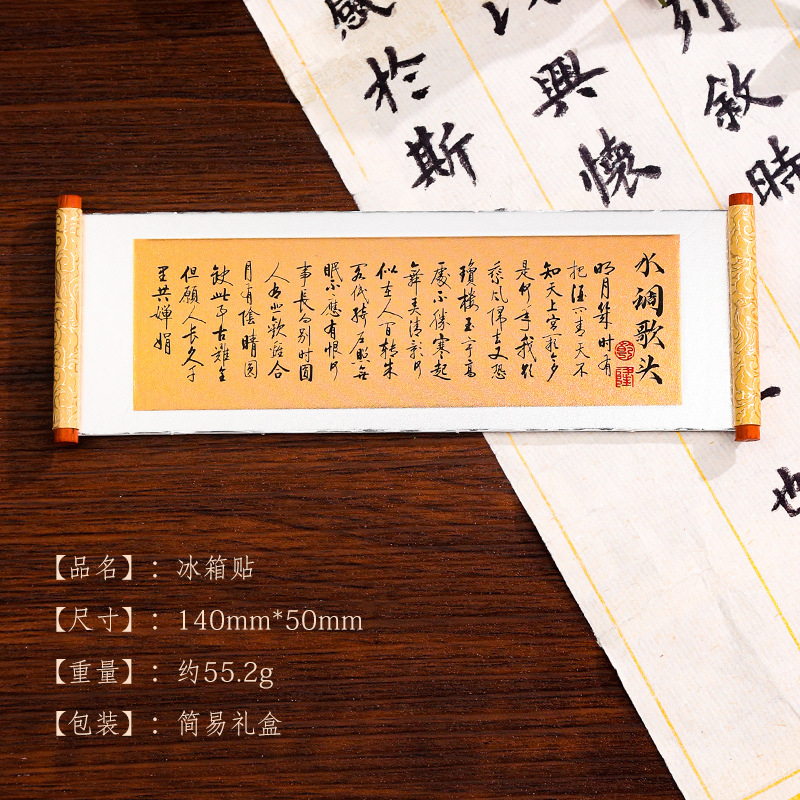 水调歌头
明月幾时有
把酒问青天不
知天上宫阙今夕
是何年我欲
乘风归去又恐
瓊楼玉宇高
處不勝寒起
舞弄清影何
似在人间转朱
阁低绮户照无
眠不應有恨何
事長向别时圆
人有悲歡離合
月有陰晴圆
缺此事古難全
但願人長久千
里共婵娟
列敘時
也
興懷
感於斯
【品名】：冰箱贴
【尺寸】：140mm*50mm
【重量】：约55.2g
【包装】：简易礼盒